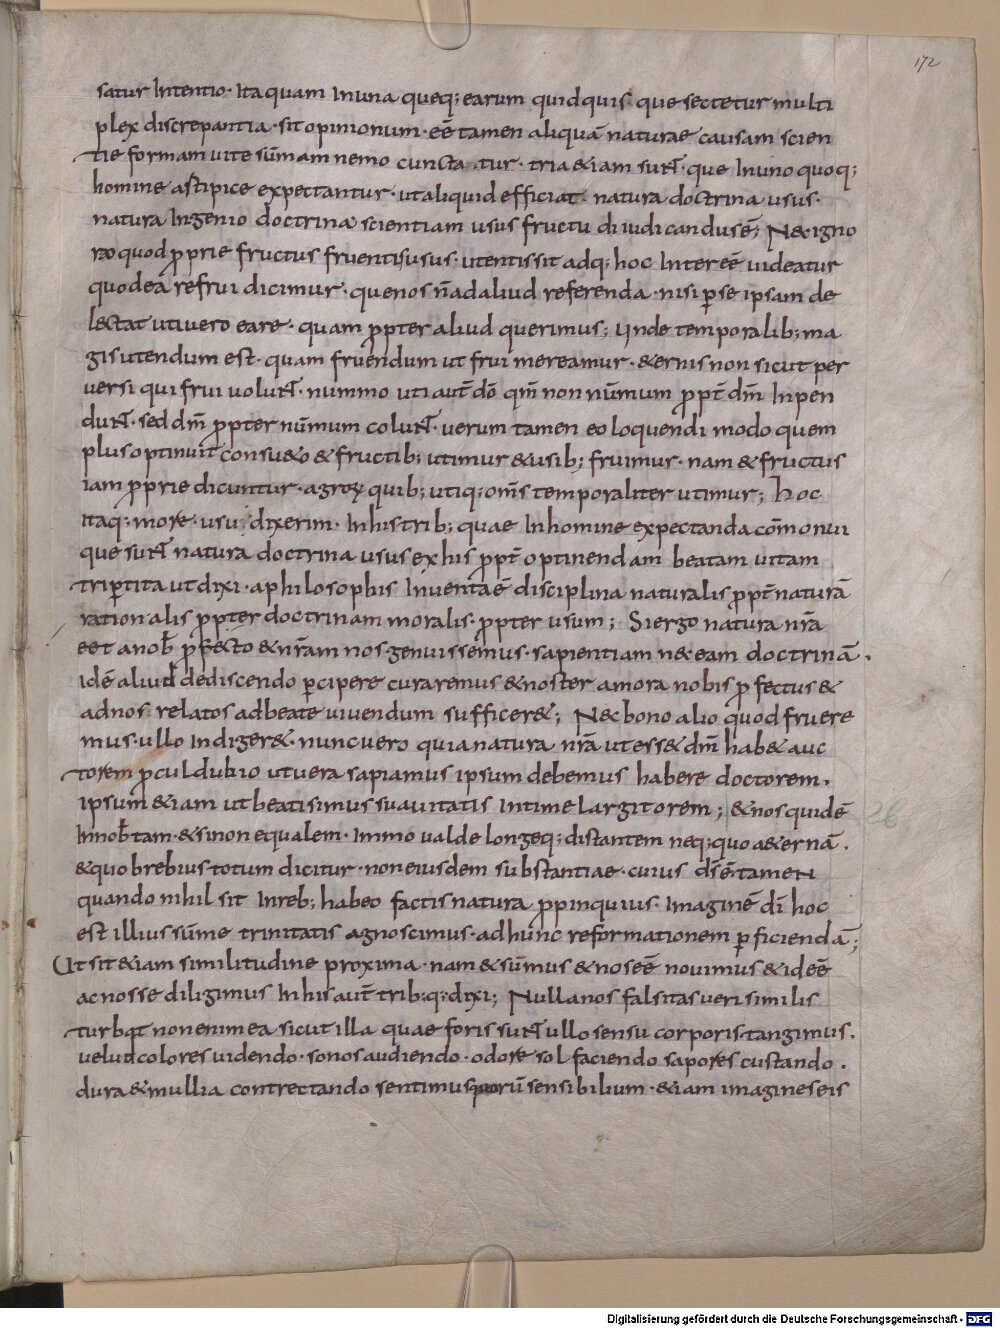 172
satur Intentio· Itaquam Inuna queq; earum quidquis que sectetur multi
plex discrepantia· sit opinionum· eē tamen aliquā naturae causam scien
tie formam uite sūmam nemo cuncta tur· tria &iam sunt· que Inuno quoq;
homine astipice expectantur· utaliquid efficiat· natura doctrina usus·
natura Ingenio doctrina scientiam usus fructu diiudicandusē; Nec igno
ro quod p̄prie fructus fruentis usus· utentis sit adq; hoc Interēē uideatur
quod eā refrui dicimur· que nos n̄ ad aliud referenda· nisi p̄ se ipsam de
lectat uti uero eare· quam p̄pter aliud querimus; Unde temporalib; ma
gis utendum est· quam fruendum ut frui mereamur· &ernis non sicut per
uersi qui frui uolunt· nummo uti aut̄ dō qm̄ non nūmum p̄pt̄ dm̄ Inpen
dunt· sed dm̄ p̄pter nūmum colunt· uerum tamen eo loquendi modo quem
plus optinuit consu&o & fructib; utimur & usib; fruimur· nam & fructus
iam p̄prie dicuntur· agrox quib; utiq; om̄s temporaliter utimur; hoc
itaq; more· usu dixerim· Inhis trib; quae Inhomine expectanda cōmonui
que sunt natura doctrina usus ex his p̄pt̄ optinendam beatam uitam
trip̄tita ut dixi· aphilosophis Inuentaē disciplina naturalis p̄pt̄ naturā
rationalis p̄pter doctrinam moralis· p̄pter usum; Si ergo natura nr̄a
eēt anob̄ p̄fecto & nr̄am nos genuissemus· sapientiam nec eam doctrinā·
idē aliud dediscendo p̄cipere curaremus & noster amor a nobis p̄fectus &
adnos relatos ad beate uiuendum suffiger&; Nec bono alio quod fruere
mus· ullo Indiger&· nunc uero quia natura nr̄a ut ess& dm̄ hab& auc
torem p̄cul dubio ut uera sapiamus ipsum debemus habere doctorem·
ipsum &iam ut beati simus suauitatis Intime largitorem; & nos quidē
Innob̄ tam· & si non equalem· Immo ualde longeq; distantem neq; quo a&ernā·
& quo brebius totum dicitur· non eiusdem substantiae· cuius dsē· tamen
quando nihil sit Inreb; habeo factis natura p̄pinquius· Imaginē dī hoc
est illius sūme trinitatis agnoscimus· adhūnc reformationem p̄ficiendā;
Ut sit &iam similitudine proxima· nam & sūmus & nosēē nouimus & idēē
ac nosse diligimus In his aut̄ trib; q; dixi; Nulla nos falsitas ueri similis
turbat non enim ea sicut illa quae foris sunt ullo sensu corporis tangimus·
uelud colores uidendo· sonos audiendo· odore sol faciendo sapores custando·
dura & mullia contrectando sentimus quorū sensibilium· &iam imagines eis
26
Digitalisierung gefördert durch die Deutsche Forschungsgemeinschaft - DFG